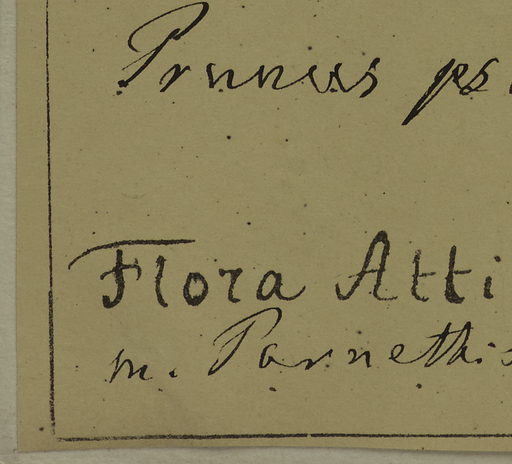 Prunus ps
Flora Atti
m. Parnethis